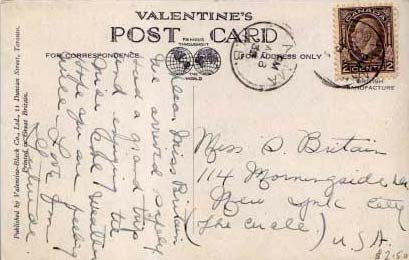 VALENTINE'S
POST CARD
FAMOUS
THROUGHOUT
THE WORLD
FOR CORRESPONDENCE
FOR ADDRESS ONLY
CANADA
2 2
BRITISH
MANUFACTURE
Published by Valentine-Black Co., Ltd., 11 Duncan Street, Toronto.
Printed in Great Britain.
Dear Miss Britain
We arrived safely
had a grand trip
and enjoying the
nice weather
hope you are feeling
Love from
Gertrude
Miss S. Britain
114 Morningside
New York City
(The
U.S.A.
$2.50